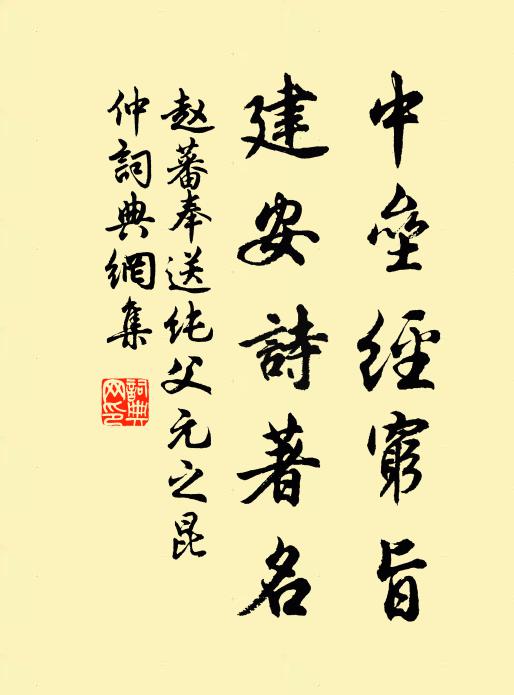 中壘經窮旨
建安詩著名
赵蕃奉送纯父元之昆
仲詞典網集
詞典
网印